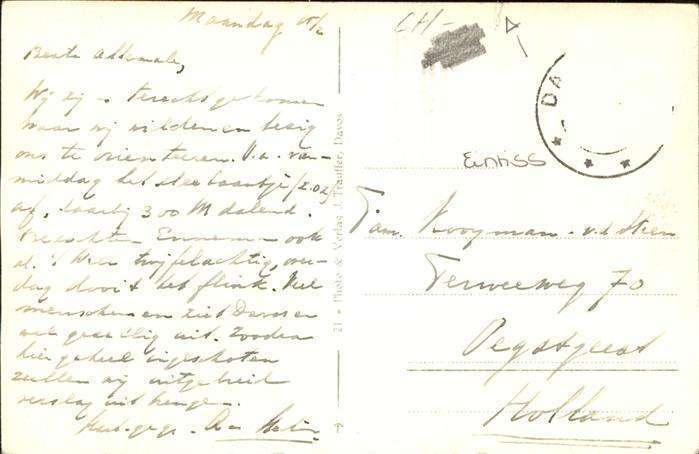 Maandag
Beste Allemaal,
Wij zijn terechtgekomen
waar wij wilden en bezig
ons te orienteren. V.a. van-
middag het sleebaantje
af, daarbij 300 M dalend.
ook
al. 't Weer twijfelachtig, over-
dag dooit het flink. Veel
mensen en ziet Davos er
wel gezellig uit. Zoodra
hier geheel ingesloten
zullen wij uitgebreid
verslag uitbrengen.
Hart. gegr.
21 • Photo & Verlag J. Trauffer, Davos
CH-
DA
Fam. Kooyman - v.d. Steen
Terweeweg 70
Oegstgeest
Holland